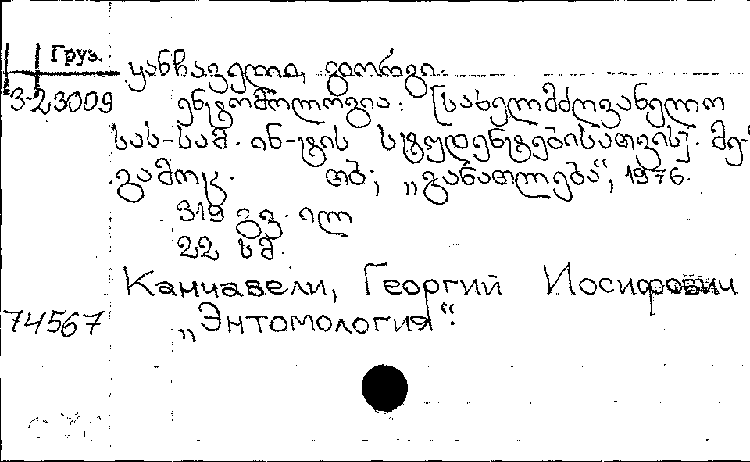 Груз.
ყანჩაველი, გიორგი.
3-23009
ენტომოლოგია. [სახელმძღვანელო
სას-სამ. ინ-ტის სტუდენტებისათვის]. მე-
გამოც. თბ; „განათლება“, 1976.
319 გვ. ილ
22 სმ.
Канчавели, Георгий Иосифович
74567 „Энтомология“.